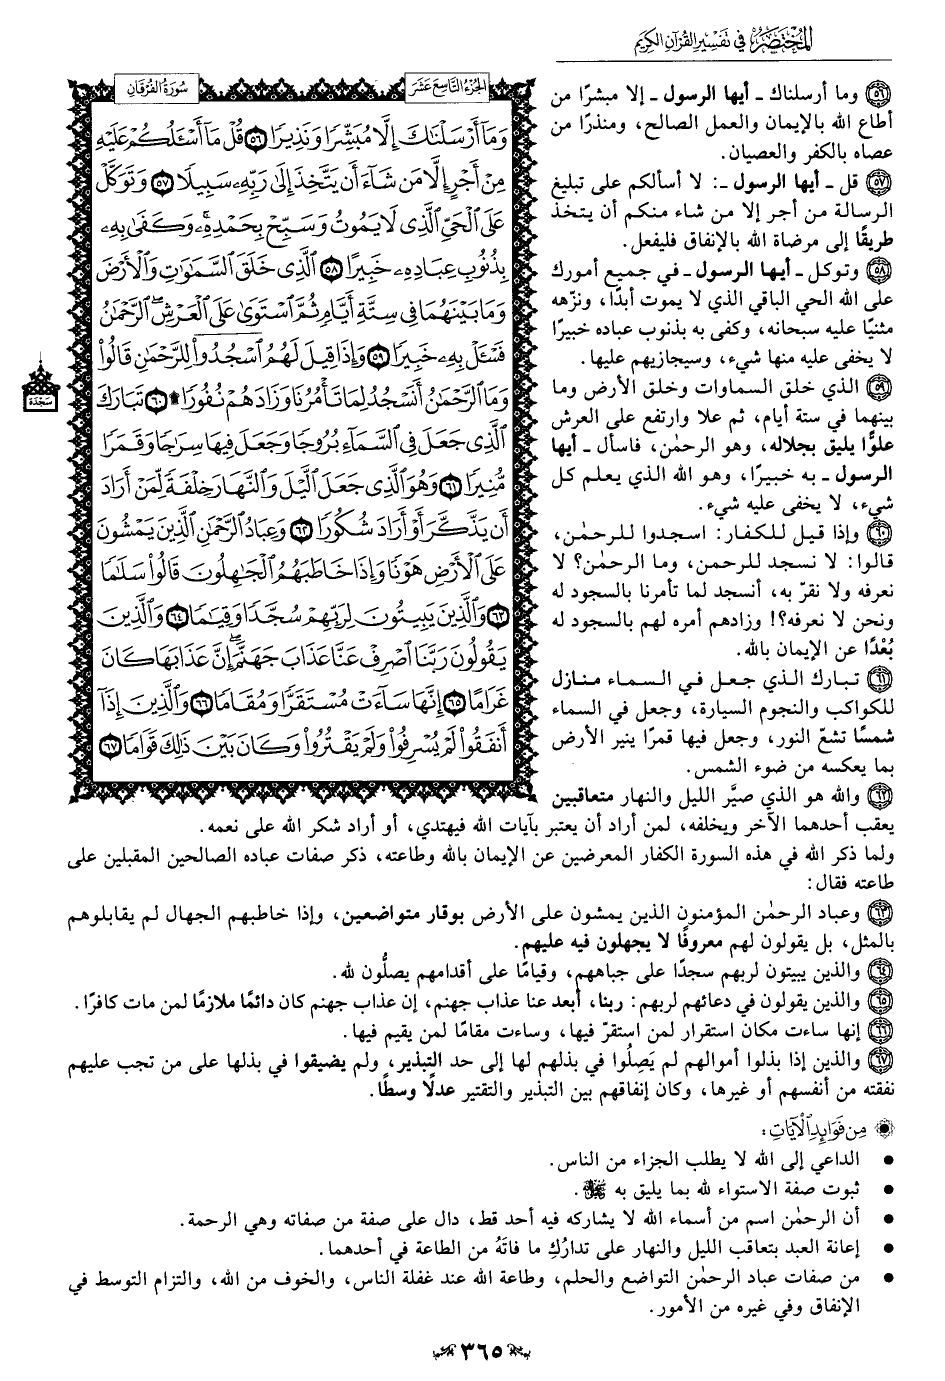 المُخْتَصَرُ في تَفْسِيرِ القُرْآنِ الكَرِيمِ
الجُزْءُ التَّاسِعَ عَشَرَ
سُورَةُ الفُرْقَانِ
وَمَآ أَرْسَلْنَٰكَ إِلَّا مُبَشِّرًا وَنَذِيرًا ٥٦ قُلْ مَآ أَسْـَٔلُكُمْ عَلَيْهِ
مِنْ أَجْرٍ إِلَّا مَن شَآءَ أَن يَتَّخِذَ إِلَىٰ رَبِّهِۦ سَبِيلًا ٥٧ وَتَوَكَّلْ
عَلَى ٱلْحَيِّ ٱلَّذِى لَا يَمُوتُ وَسَبِّحْ بِحَمْدِهِۦ ۚ وَكَفَىٰ بِهِۦ
بِذُنُوبِ عِبَادِهِۦ خَبِيرًا ٥٨ ٱلَّذِى خَلَقَ ٱلسَّمَٰوَٰتِ وَٱلْأَرْضَ
وَمَا بَيْنَهُمَا فِى سِتَّةِ أَيَّامٍ ثُمَّ ٱسْتَوَىٰ عَلَى ٱلْعَرْشِ ۚ ٱلرَّحْمَٰنُ
فَسْـَٔلْ بِهِۦ خَبِيرًا ٥٩ وَإِذَا قِيلَ لَهُمُ ٱسْجُدُوا۟ لِلرَّحْمَٰنِ قَالُوا۟
وَمَا ٱلرَّحْمَٰنُ أَنَسْجُدُ لِمَا تَأْمُرُنَا وَزَادَهُمْ نُفُورًا ۩ ٦٠ تَبَارَكَ
ٱلَّذِى جَعَلَ فِى ٱلسَّمَآءِ بُرُوجًا وَجَعَلَ فِيهَا سِرَٰجًا وَقَمَرًا
مُّنِيرًا ٦١ وَهُوَ ٱلَّذِى جَعَلَ ٱلَّيْلَ وَٱلنَّهَارَ خِلْفَةً لِّمَنْ أَرَادَ
أَن يَذَّكَّرَ أَوْ أَرَادَ شُكُورًا ٦٢ وَعِبَادُ ٱلرَّحْمَٰنِ ٱلَّذِينَ يَمْشُونَ
عَلَى ٱلْأَرْضِ هَوْنًا وَإِذَا خَاطَبَهُمُ ٱلْجَٰهِلُونَ قَالُوا۟ سَلَٰمًا
٦٣ وَٱلَّذِينَ يَبِيتُونَ لِرَبِّهِمْ سُجَّدًا وَقِيَٰمًا ٦٤ وَٱلَّذِينَ
يَقُولُونَ رَبَّنَا ٱصْرِفْ عَنَّا عَذَابَ جَهَنَّمَ ۖ إِنَّ عَذَابَهَا كَانَ
غَرَامًا ٦٥ إِنَّهَا سَآءَتْ مُسْتَقَرًّا وَمُقَامًا ٦٦ وَٱلَّذِينَ إِذَآ
أَنفَقُوا۟ لَمْ يُسْرِفُوا۟ وَلَمْ يَقْتُرُوا۟ وَكَانَ بَيْنَ ذَٰلِكَ قَوَامًا ٦٧
سَجْدَة
٥٦ وما أرسلناك - أيها الرسول - إلا مبشرًا من
أطاع الله بالإيمان والعمل الصالح، ومنذرًا من
عصاه بالكفر والعصيان.
٥٧ قل - أيها الرسول -: لا أسألكم على تبليغ
الرسالة من أجر إلا من شاء منكم أن يتخذ
طريقًا إلى مرضاة الله بالإنفاق فليفعل.
٥٨ وتوكل - أيها الرسول - في جميع أمورك
على الله الحي الباقي الذي لا يموت أبدًا، ونزّهه
مثنيًا عليه سبحانه، وكفى به بذنوب عباده خبيرًا
لا يخفى عليه منها شيء، وسيجازيهم عليها.
٥٩ الذي خلق السماوات وخلق الأرض وما
بينهما في ستة أيام، ثم علا وارتفع على العرش
علوًّا يليق بجلاله، وهو الرحمٰن، فاسأل - أيها
الرسول - به خبيرًا، وهو الله الذي يعلم كل
شيء، لا يخفى عليه شيء.
٦٠ وإذا قيل للكفار: اسجدوا للرحمٰن،
قالوا: لا نسجد للرحمن، وما الرحمٰن؟ لا
نعرفه ولا نقرّ به، أنسجد لما تأمرنا بالسجود له
ونحن لا نعرفه؟! وزادهم أمره لهم بالسجود له
بُعْدًا عن الإيمان بالله.
٦١ تبارك الذي جعل في السماء منازل
للكواكب والنجوم السيارة، وجعل في السماء
شمسًا تشعّ النور، وجعل فيها قمرًا ينير الأرض
بما يعكسه من ضوء الشمس.
٦٢ والله هو الذي صيَّر الليل والنهار متعاقبين
يعقب أحدهما الآخر ويخلفه، لمن أراد أن يعتبر بآيات الله فيهتدي، أو أراد شكر الله على نعمه.
ولما ذكر الله في هذه السورة الكفار المعرضين عن الإيمان بالله وطاعته، ذكر صفات عباده الصالحين المقبلين على
طاعته فقال:
٦٣ وعباد الرحمٰن المؤمنون الذين يمشون على الأرض بوقار متواضعين، وإذا خاطبهم الجهال لم يقابلوهم
بالمثل، بل يقولون لهم معروفًا لا يجهلون فيه عليهم.
٦٤ والذين يبيتون لربهم سجدًا على جباههم، وقيامًا على أقدامهم يصلُّون لله.
٦٥ والذين يقولون في دعائهم لربهم: ربنا، أبعد عنا عذاب جهنم، إن عذاب جهنم كان دائمًا ملازمًا لمن مات كافرًا.
٦٦ إنها ساءت مكان استقرار لمن استقرّ فيها، وساءت مقامًا لمن يقيم فيها.
٦٧ والذين إذا بذلوا أموالهم لم يَصِلُوا في بذلهم لها إلى حد التبذير، ولم يضيقوا في بذلها على من تجب عليهم
نفقته من أنفسهم أو غيرها، وكان إنفاقهم بين التبذير والتقتير عدلًا وسطًا.
مِن فَوَائِدِ الآيَاتِ:
• الداعي إلى الله لا يطلب الجزاء من الناس.
• ثبوت صفة الاستواء لله بما يليق به ﷻ.
• أن الرحمٰن اسم من أسماء الله لا يشاركه فيه أحد قط، دال على صفة من صفاته وهي الرحمة.
• إعانة العبد بتعاقب الليل والنهار على تدارُكِ ما فاتَهُ من الطاعة في أحدهما.
• من صفات عباد الرحمٰن التواضع والحلم، وطاعة الله عند غفلة الناس، والخوف من الله، والتزام التوسط في
الإنفاق وفي غيره من الأمور.
٣٦٥